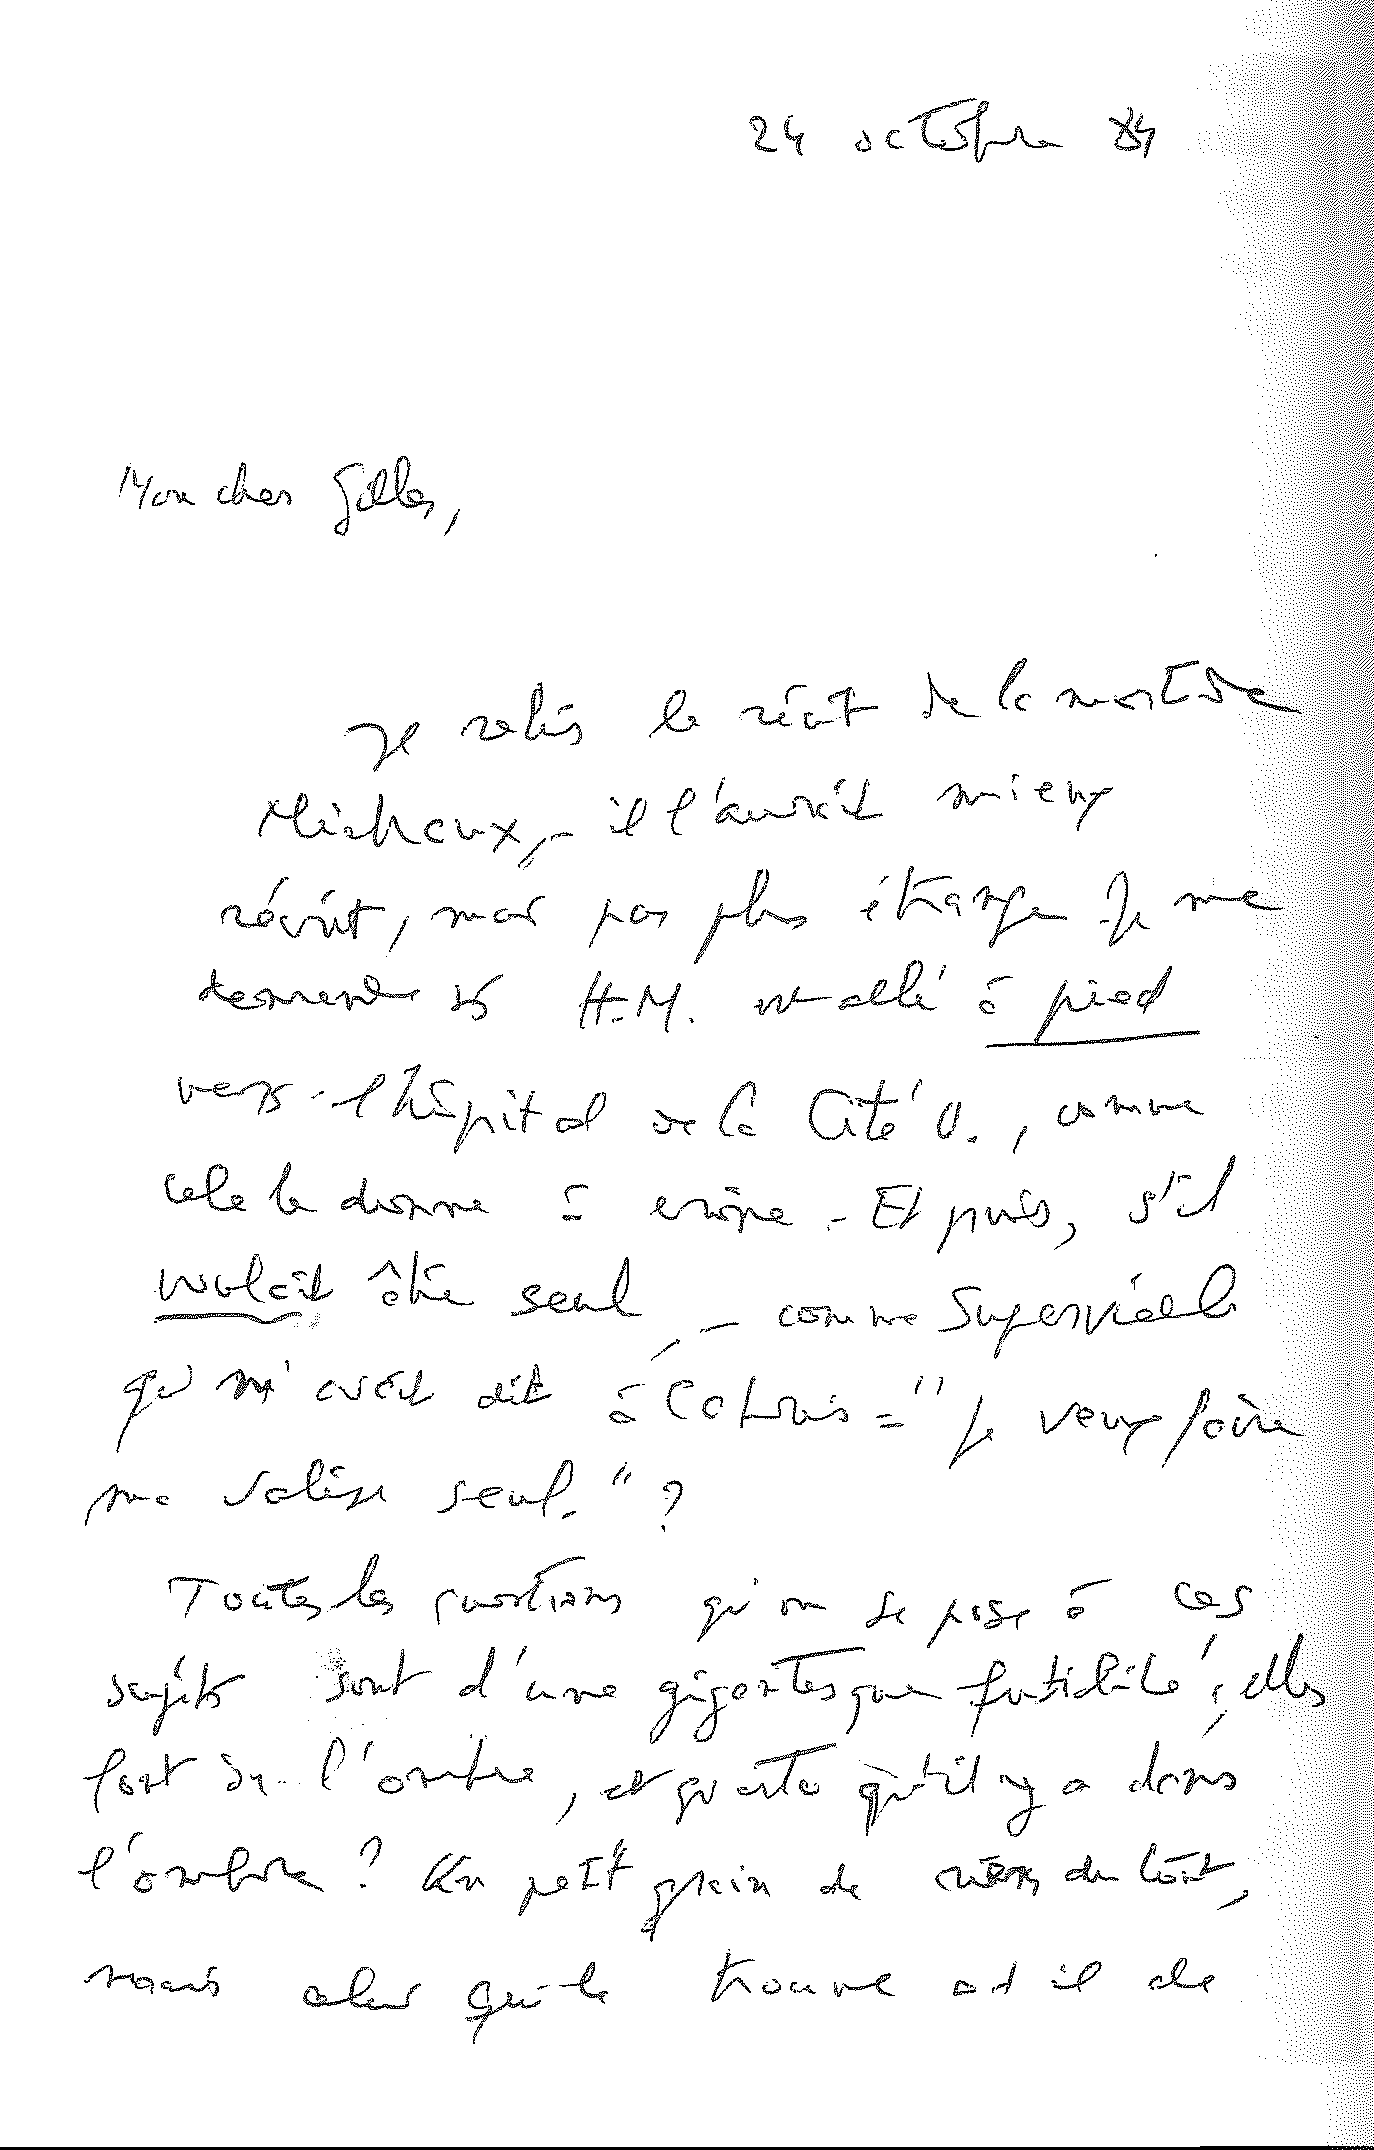 24 octobre 84
Mon cher Gilles,
Je relis le récit de la mort de
Michaux, – il l'aurait mieux
récrit, mais pas plus étrange. Je me
demande si H.M. est allé à pied
vers l'hôpital de la Cité U., comme
cela le donne à croire. Et puis, s'il
voulait être seul, – comme Supervielle
qui m'avait dit à : "Je veux faire
ma valise seul." ?
Toutes les questions qu'on se pose à ces
sujets sont d'une gigantesque futilité ; elles
font de l'ombre, et qu'est-ce qu'il y a dans
l'ombre ? Un petit grain de rien du tout,
mais celui qui le trouve a-t-il de